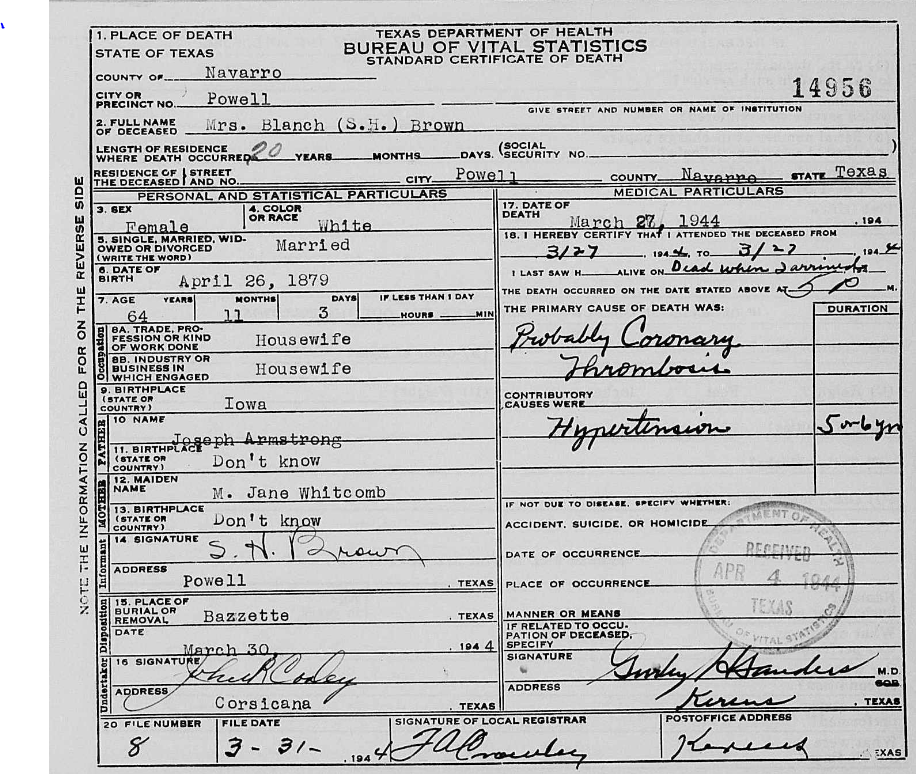 1. PLACE OF DEATH
STATE OF TEXAS
TEXAS DEPARTMENT OF HEALTH
BUREAU OF VITAL STATISTICS
STANDARD CERTIFICATE OF DEATH
COUNTY OF Navarro
14956
CITY OR PRECINCT NO. Powell
GIVE STREET AND NUMBER OR NAME OF INSTITUTION
2. FULL NAME OF DECEASED Mrs. Blanch (S.H.) Brown
LENGTH OF RESIDENCE WHERE DEATH OCCURRED 20 YEARS MONTHS DAYS. (SOCIAL SECURITY NO. )
RESIDENCE OF THE DECEASED STREET AND NO. CITY Powell COUNTY Navarro STATE Texas
NOTE THE INFORMATION CALLED FOR ON THE REVERSE SIDE
PERSONAL AND STATISTICAL PARTICULARS
3. SEX Female
4. COLOR OR RACE White
5. SINGLE, MARRIED, WIDOWED OR DIVORCED (WRITE THE WORD) Married
6. DATE OF BIRTH April 26, 1879
7. AGE YEARS MONTHS DAYS IF LESS THAN 1 DAY
64 11 3 HOURS MIN
Occupation
8A. TRADE, PROFESSION OR KIND OF WORK DONE Housewife
8B. INDUSTRY OR BUSINESS IN WHICH ENGAGED Housewife
9. BIRTHPLACE (STATE OR COUNTRY) Iowa
FATHER
10 NAME Joseph Armstrong
11. BIRTHPLACE (STATE OR COUNTRY) Don't know
MOTHER
12. MAIDEN NAME M. Jane Whitcomb
13. BIRTHPLACE (STATE OR COUNTRY) Don't know
Informant
14 SIGNATURE S. H. Brown
ADDRESS Powell, TEXAS
Disposition
15. PLACE OF BURIAL OR REMOVAL Bazzette, TEXAS
DATE March 30, 1944
Undertaker
16 SIGNATURE John R Corley
ADDRESS Corsicana, TEXAS
MEDICAL PARTICULARS
17. DATE OF DEATH March 27, 1944 , 194
18. I HEREBY CERTIFY THAT I ATTENDED THE DECEASED FROM
3/27 1944, TO 3/27 1944
I LAST SAW H ALIVE ON Dead when I arrived
THE DEATH OCCURRED ON THE DATE STATED ABOVE AT 5 P M.
THE PRIMARY CAUSE OF DEATH WAS: DURATION
Probably Coronary
Thrombosis
CONTRIBUTORY CAUSES WERE
Hypertension 5 or 6 yrs
IF NOT DUE TO DISEASE, SPECIFY WHETHER:
ACCIDENT, SUICIDE, OR HOMICIDE
DATE OF OCCURRENCE
PLACE OF OCCURRENCE
MANNER OR MEANS
DEPARTMENT OF HEALTH
RECEIVED
APR 4 1944
TEXAS
BUREAU OF VITAL STATISTICS
IF RELATED TO OCCUPATION OF DECEASED, SPECIFY
SIGNATURE Gurley H Sanders M.D.
ADDRESS Kerens, TEXAS
20 FILE NUMBER 8
FILE DATE 3-31-, 1944
SIGNATURE OF LOCAL REGISTRAR
POSTOFFICE ADDRESS Kerens TEXAS